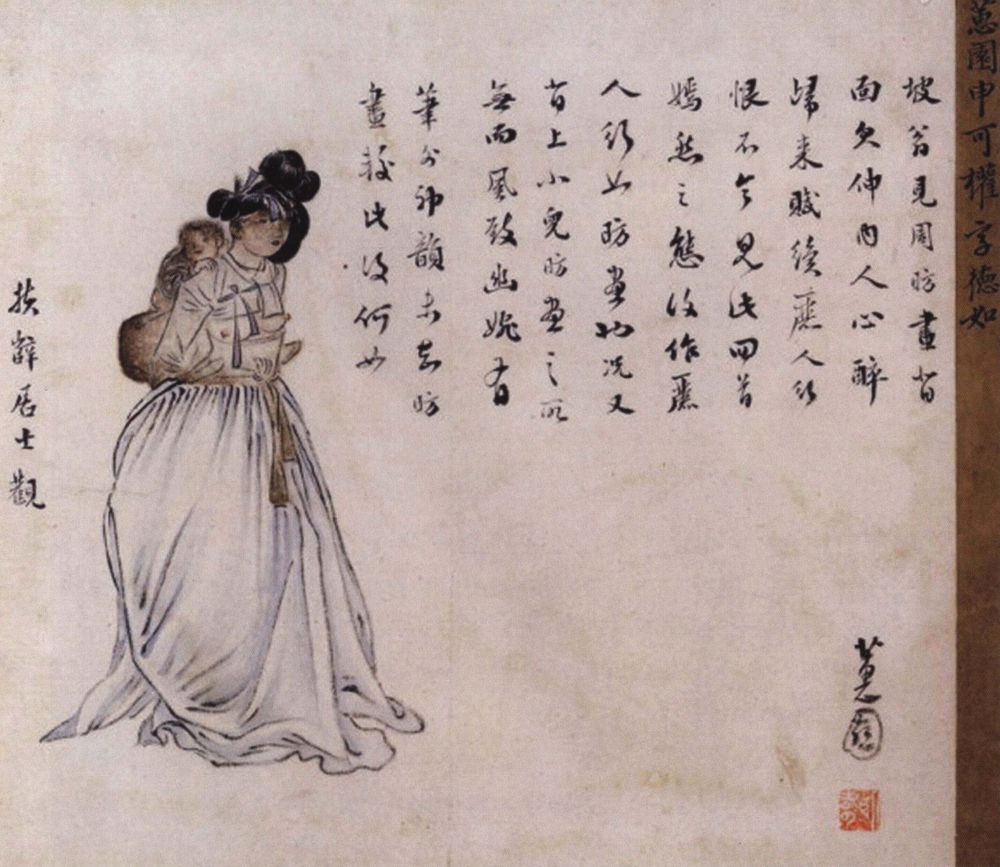 蕙園申可權字德如
坡翁見周昉畫背
面欠伸內人心醉
歸來賦續麗人行
恨不令見此回首
嫣然之態復作麗
人行如昉畫也況又
背上小兒昉畫之所
無而風致幽婉有
筆外神韻未知昉
畫較此復何如
蕙園
扶辭居士觀